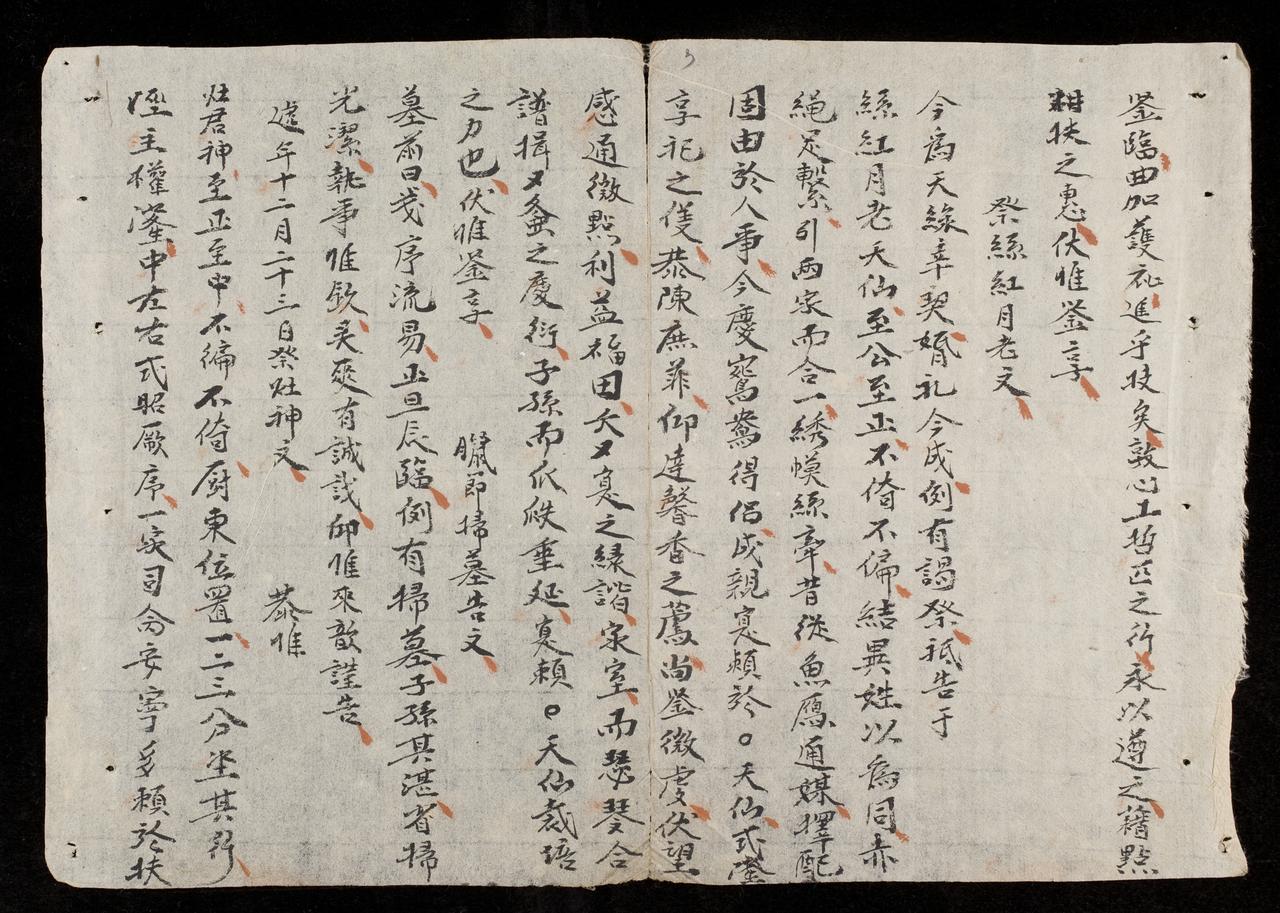 鉴臨曲加護祉進乎技矣敦心土哲匠之行永以遵之藉點
相扶之惠伏惟鉴享
祭絲紅月老文
今為天緣幸契婚礼今成例有謁祭祗告于
絲紅月老天仙至公至正不倚不偏結異姓以為同赤
繩足繫引兩家而合一綉幙絲牽昔從魚鴈通媒擇配
固由於人事今慶鴛鴦得侣成親寔頼於天仙式澄
享祀之仗恭陳庶菲仰達馨香之薦尚鉴微虔伏望
感通微點利益福田夭夭寔之緣諧家室而瑟琴合
譜揖揖螽之慶衍子孫而瓜瓞垂延寔頼天仙裁培
之力也伏惟鉴享
臘節掃墓告文
墓前曰歲序流易正旦辰臨例有掃墓子孫其湛省掃
光潔執事惟欽爰爽有誠哉仰惟來歆謹告
遞年十二月二十三日祭灶神文 恭惟
灶君神至正至中不徧不倚厨東位置一二三分坐其所
烟主權鉴中左右式昭厥序一家司命安寧多頼於扶